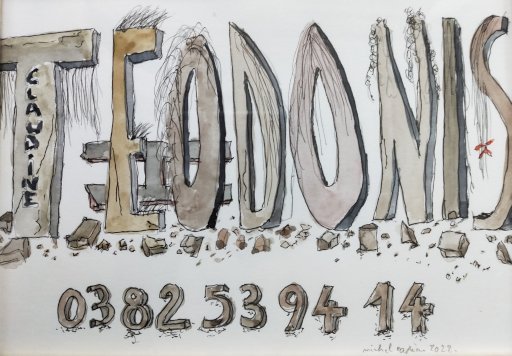 CLAUDINE
TEODONIS
0382 53 94 14
michel 2022